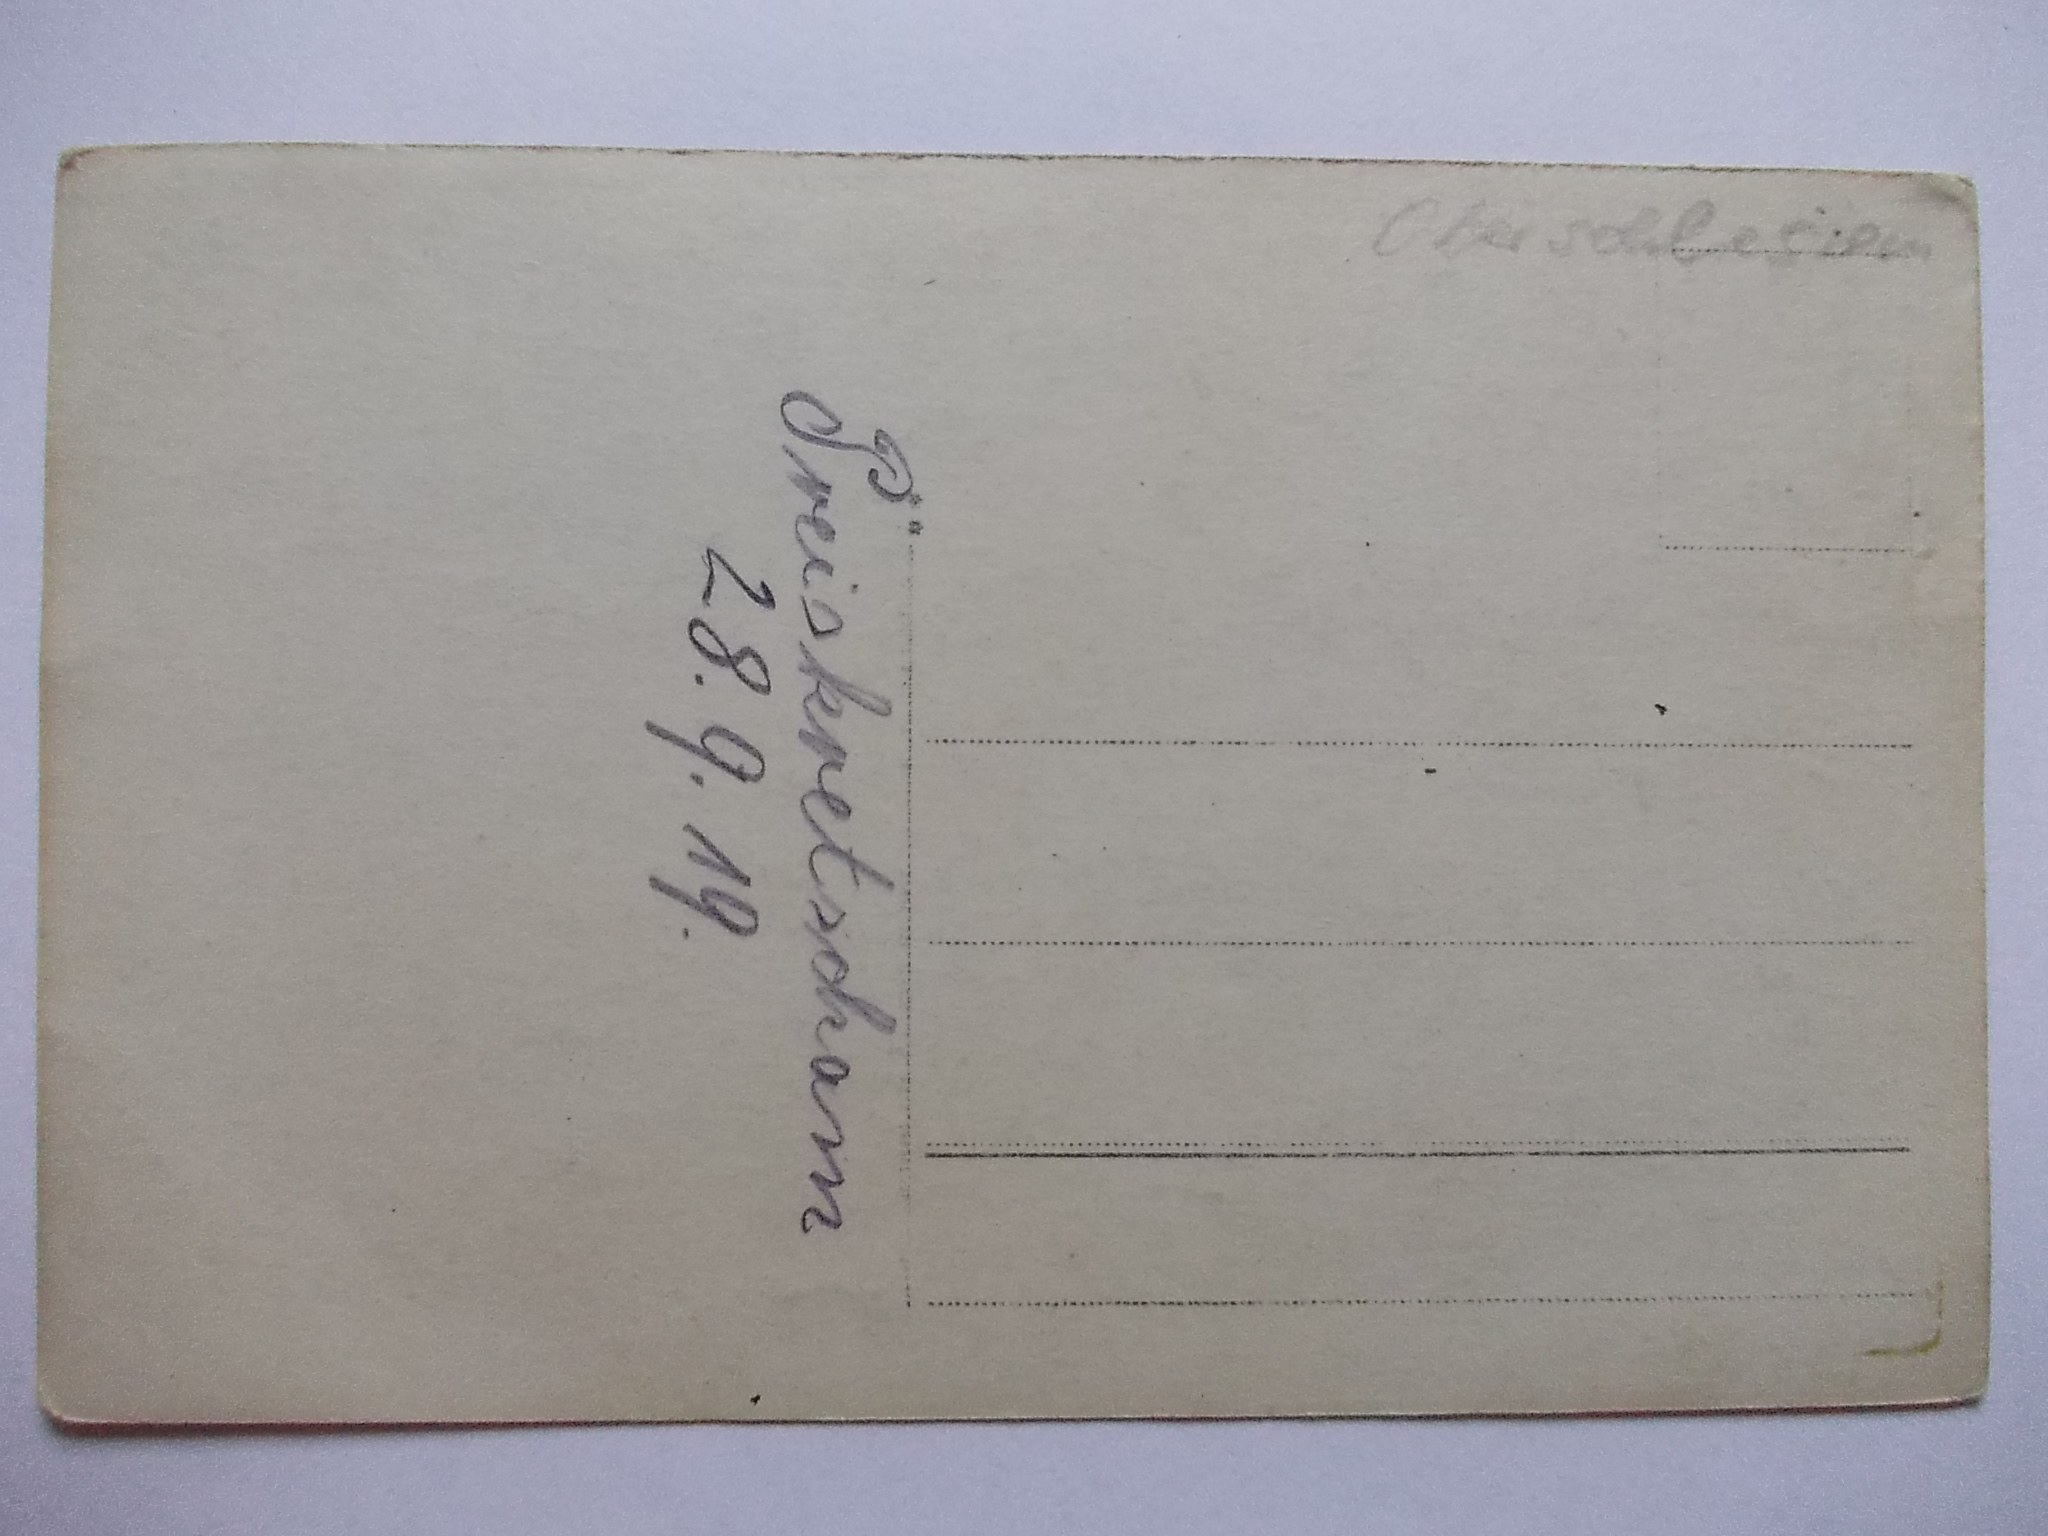 Oberschlesien
Preiskretscham
28. 9. 19.